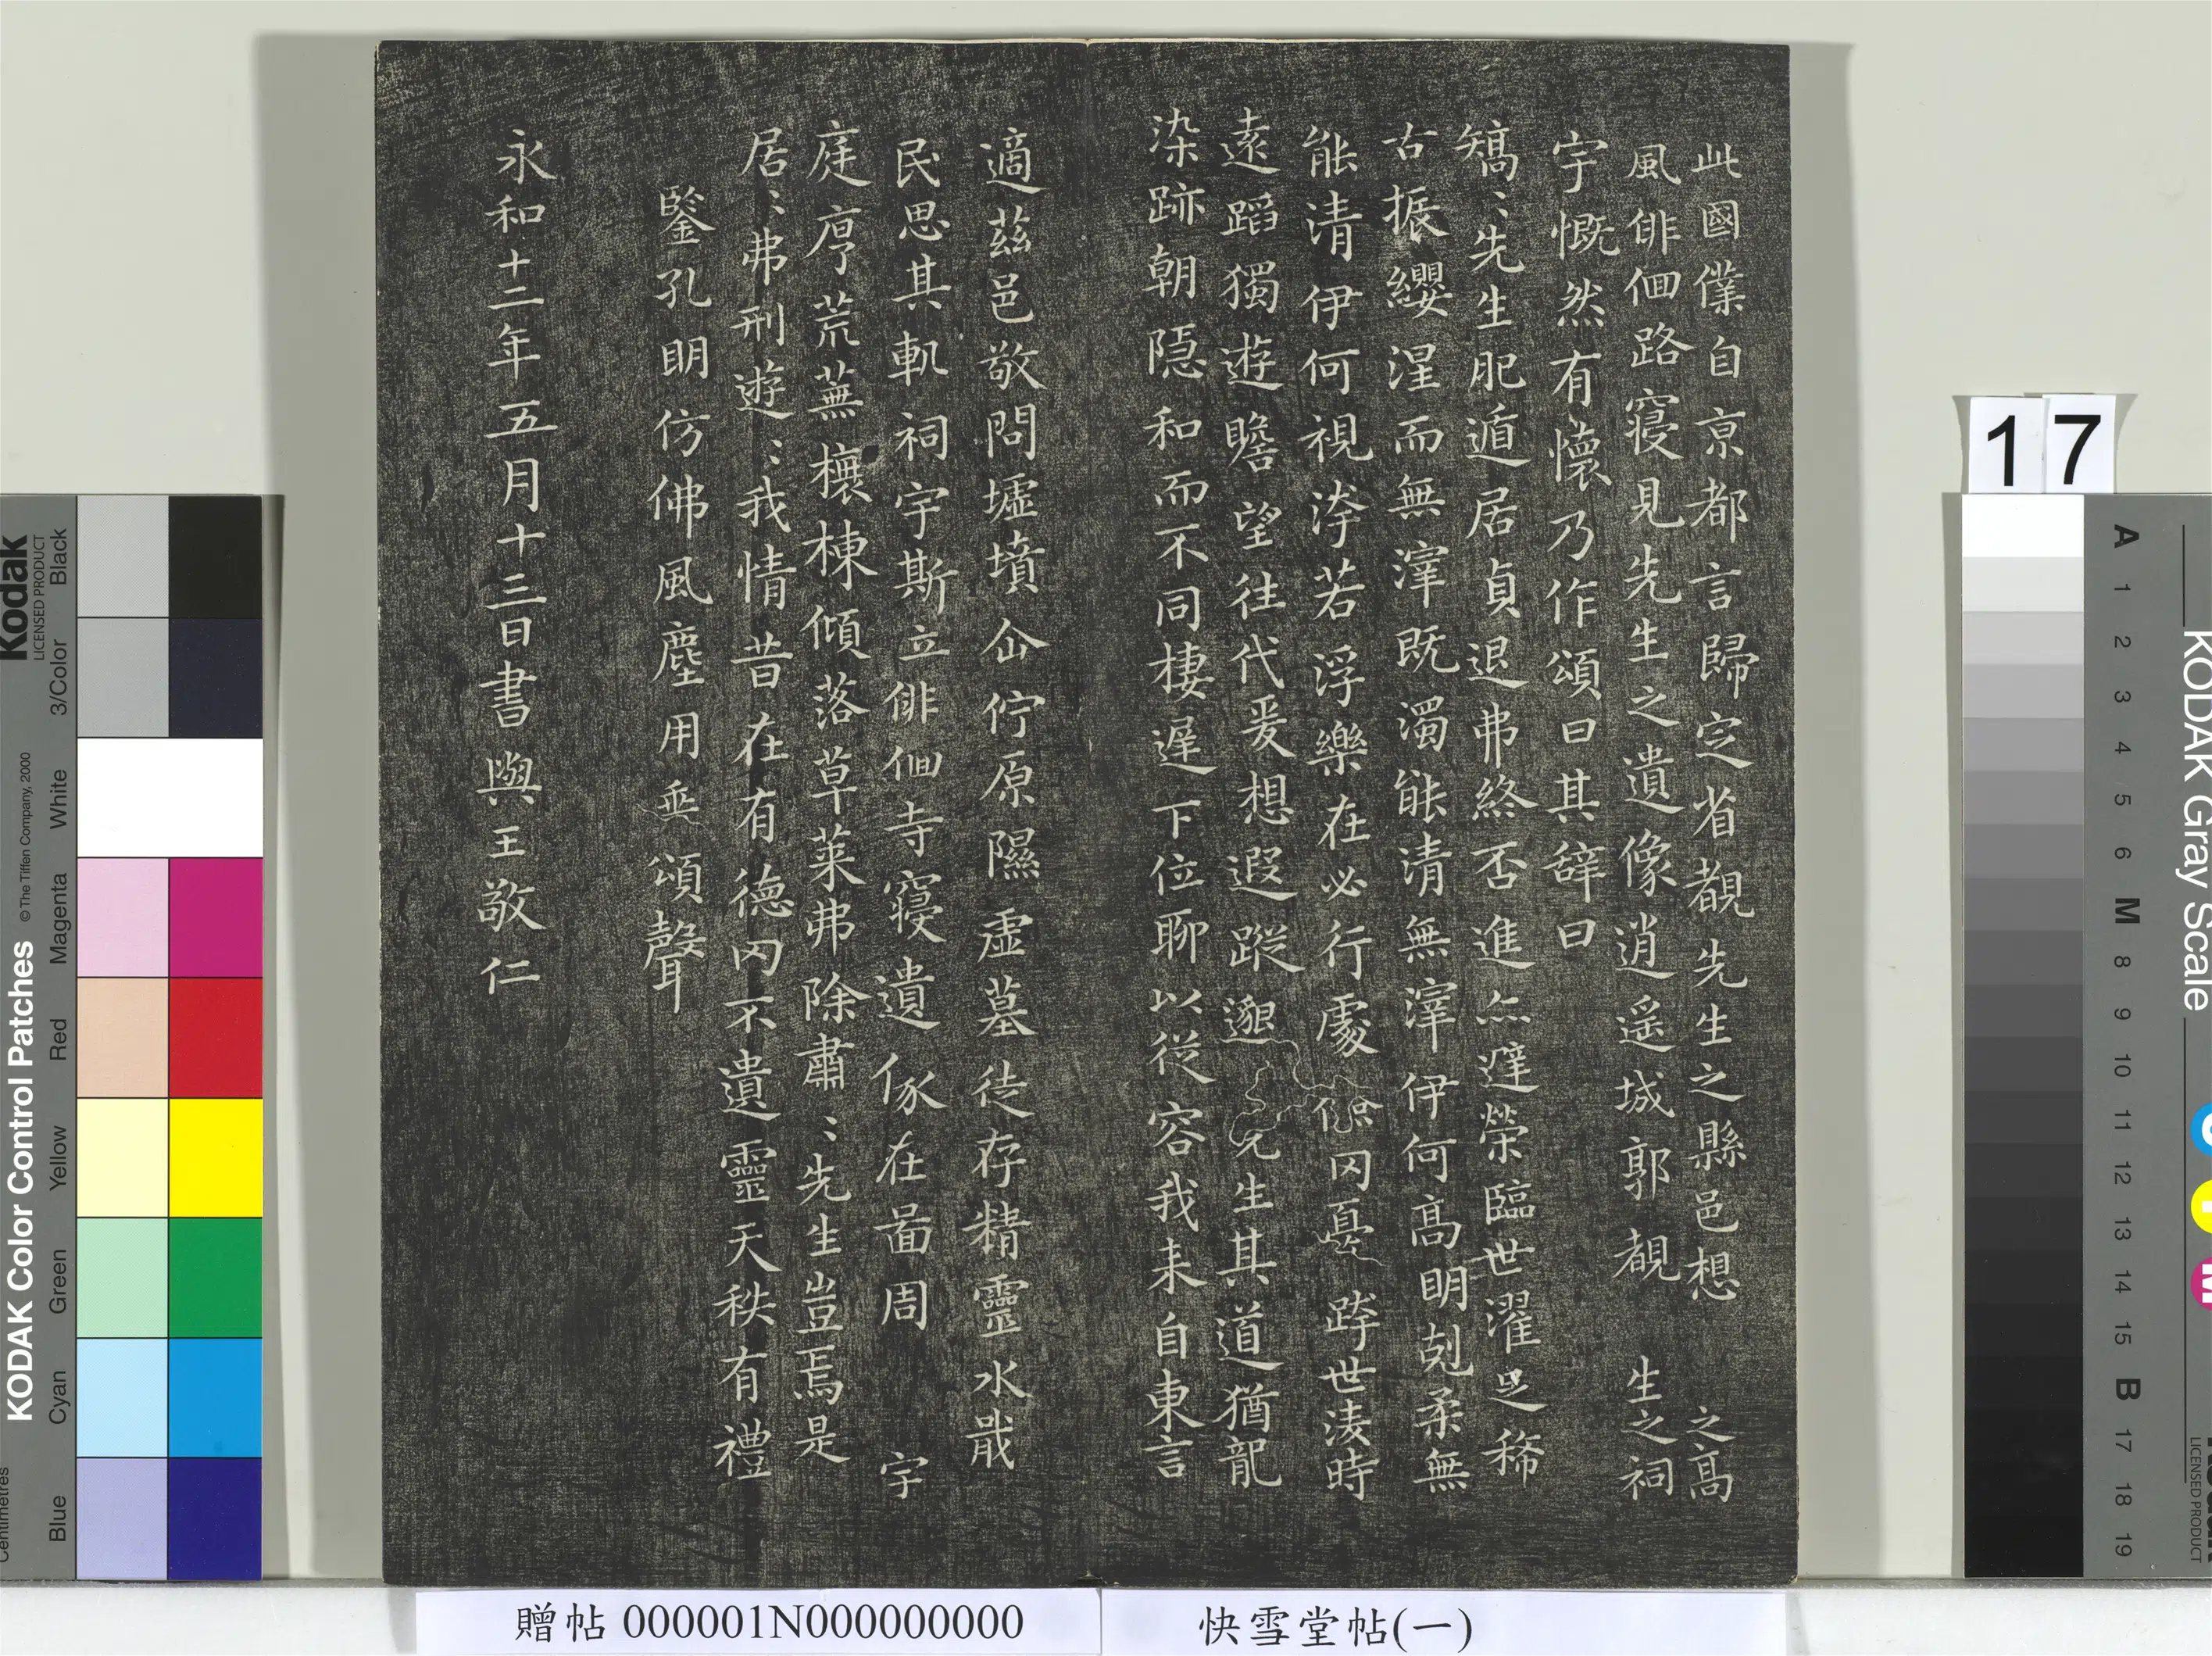 此國僕自京都言歸定省覩先生之縣邑想 之高
風俳佪路寑見先生之遺像逍遥城郭覩 生之祠
宇慨然有懷乃作頌曰其辞曰
矯〻先生肥遁居貞退弗終否進亦避榮臨世濯足稀
古振纓涅而無滓既濁能清無滓伊何高明剋柔無
能清伊何視汙若浮樂在必行處 囚憂跨世淩時
遠蹈獨遊瞻望往代爰想遐蹤邈 先生其道猶龍
染跡朝隱和而不同棲遲下位聊以従容我来自東言
適茲邑敬問墟墳企佇原隰虛墓徒存精靈永戢
民思其軌祠宇斯立俳佪寺寑遺像在啚周 宇
庭序荒蕪榱棟傾落草萊弗除肅〻先生豈焉是
居〻弗刑遊〻我情昔在有德罔不遺靈天秩有禮
鑒孔明仿佛風塵用垂頌聲
永和十二年五月十三日書與王敬仁
贈帖 000001N000000000
快雪堂帖(一)
17
Kodak
LICENSED PRODUCT
KODAK Color Control Patches
© The Tiffen Company, 2000
Centimetres
Blue
Cyan
Green
Yellow
Red
Magenta
White
3/Color
Black
KODAK Gray Scale
LICENSED PRODUCT
C
Y
M
A 1 2 3 4 5 6 M 8 9 10 11 12 13 14 15 B 17 18 19